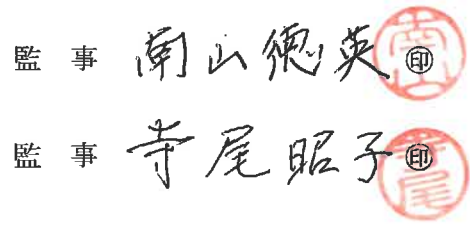 監事 南山徳英 ㊞ 南山
監事 寺尾昭子 ㊞ 寺尾